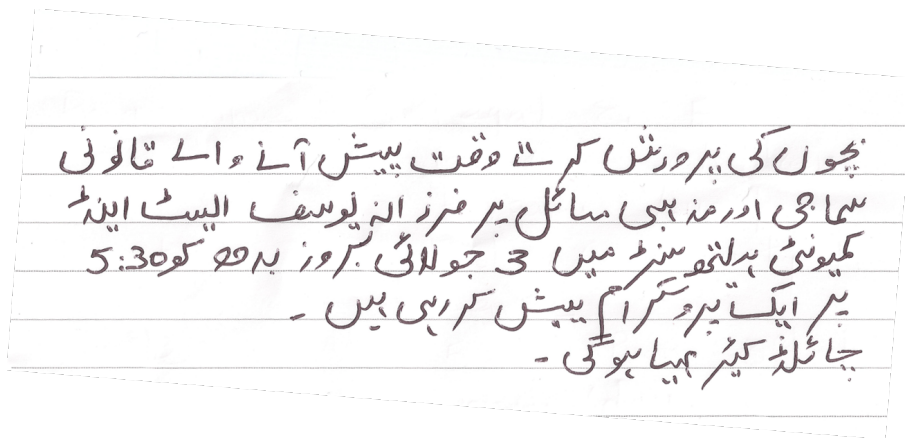 بچوں کی پرورش کرتے وقت پیش آنے والے قانونی
سماجی اور مذہبی مسائل پر فرزانہ یوسف ایسٹ اینڈ
کمیونٹی ہیلتھ سنٹر میں 3 جولائی بروز بدھ کو 5:30
پر ایک پروگرام پیش کر رہی ہیں ۔
چائلڈ کیئر مہیا ہوگی ۔